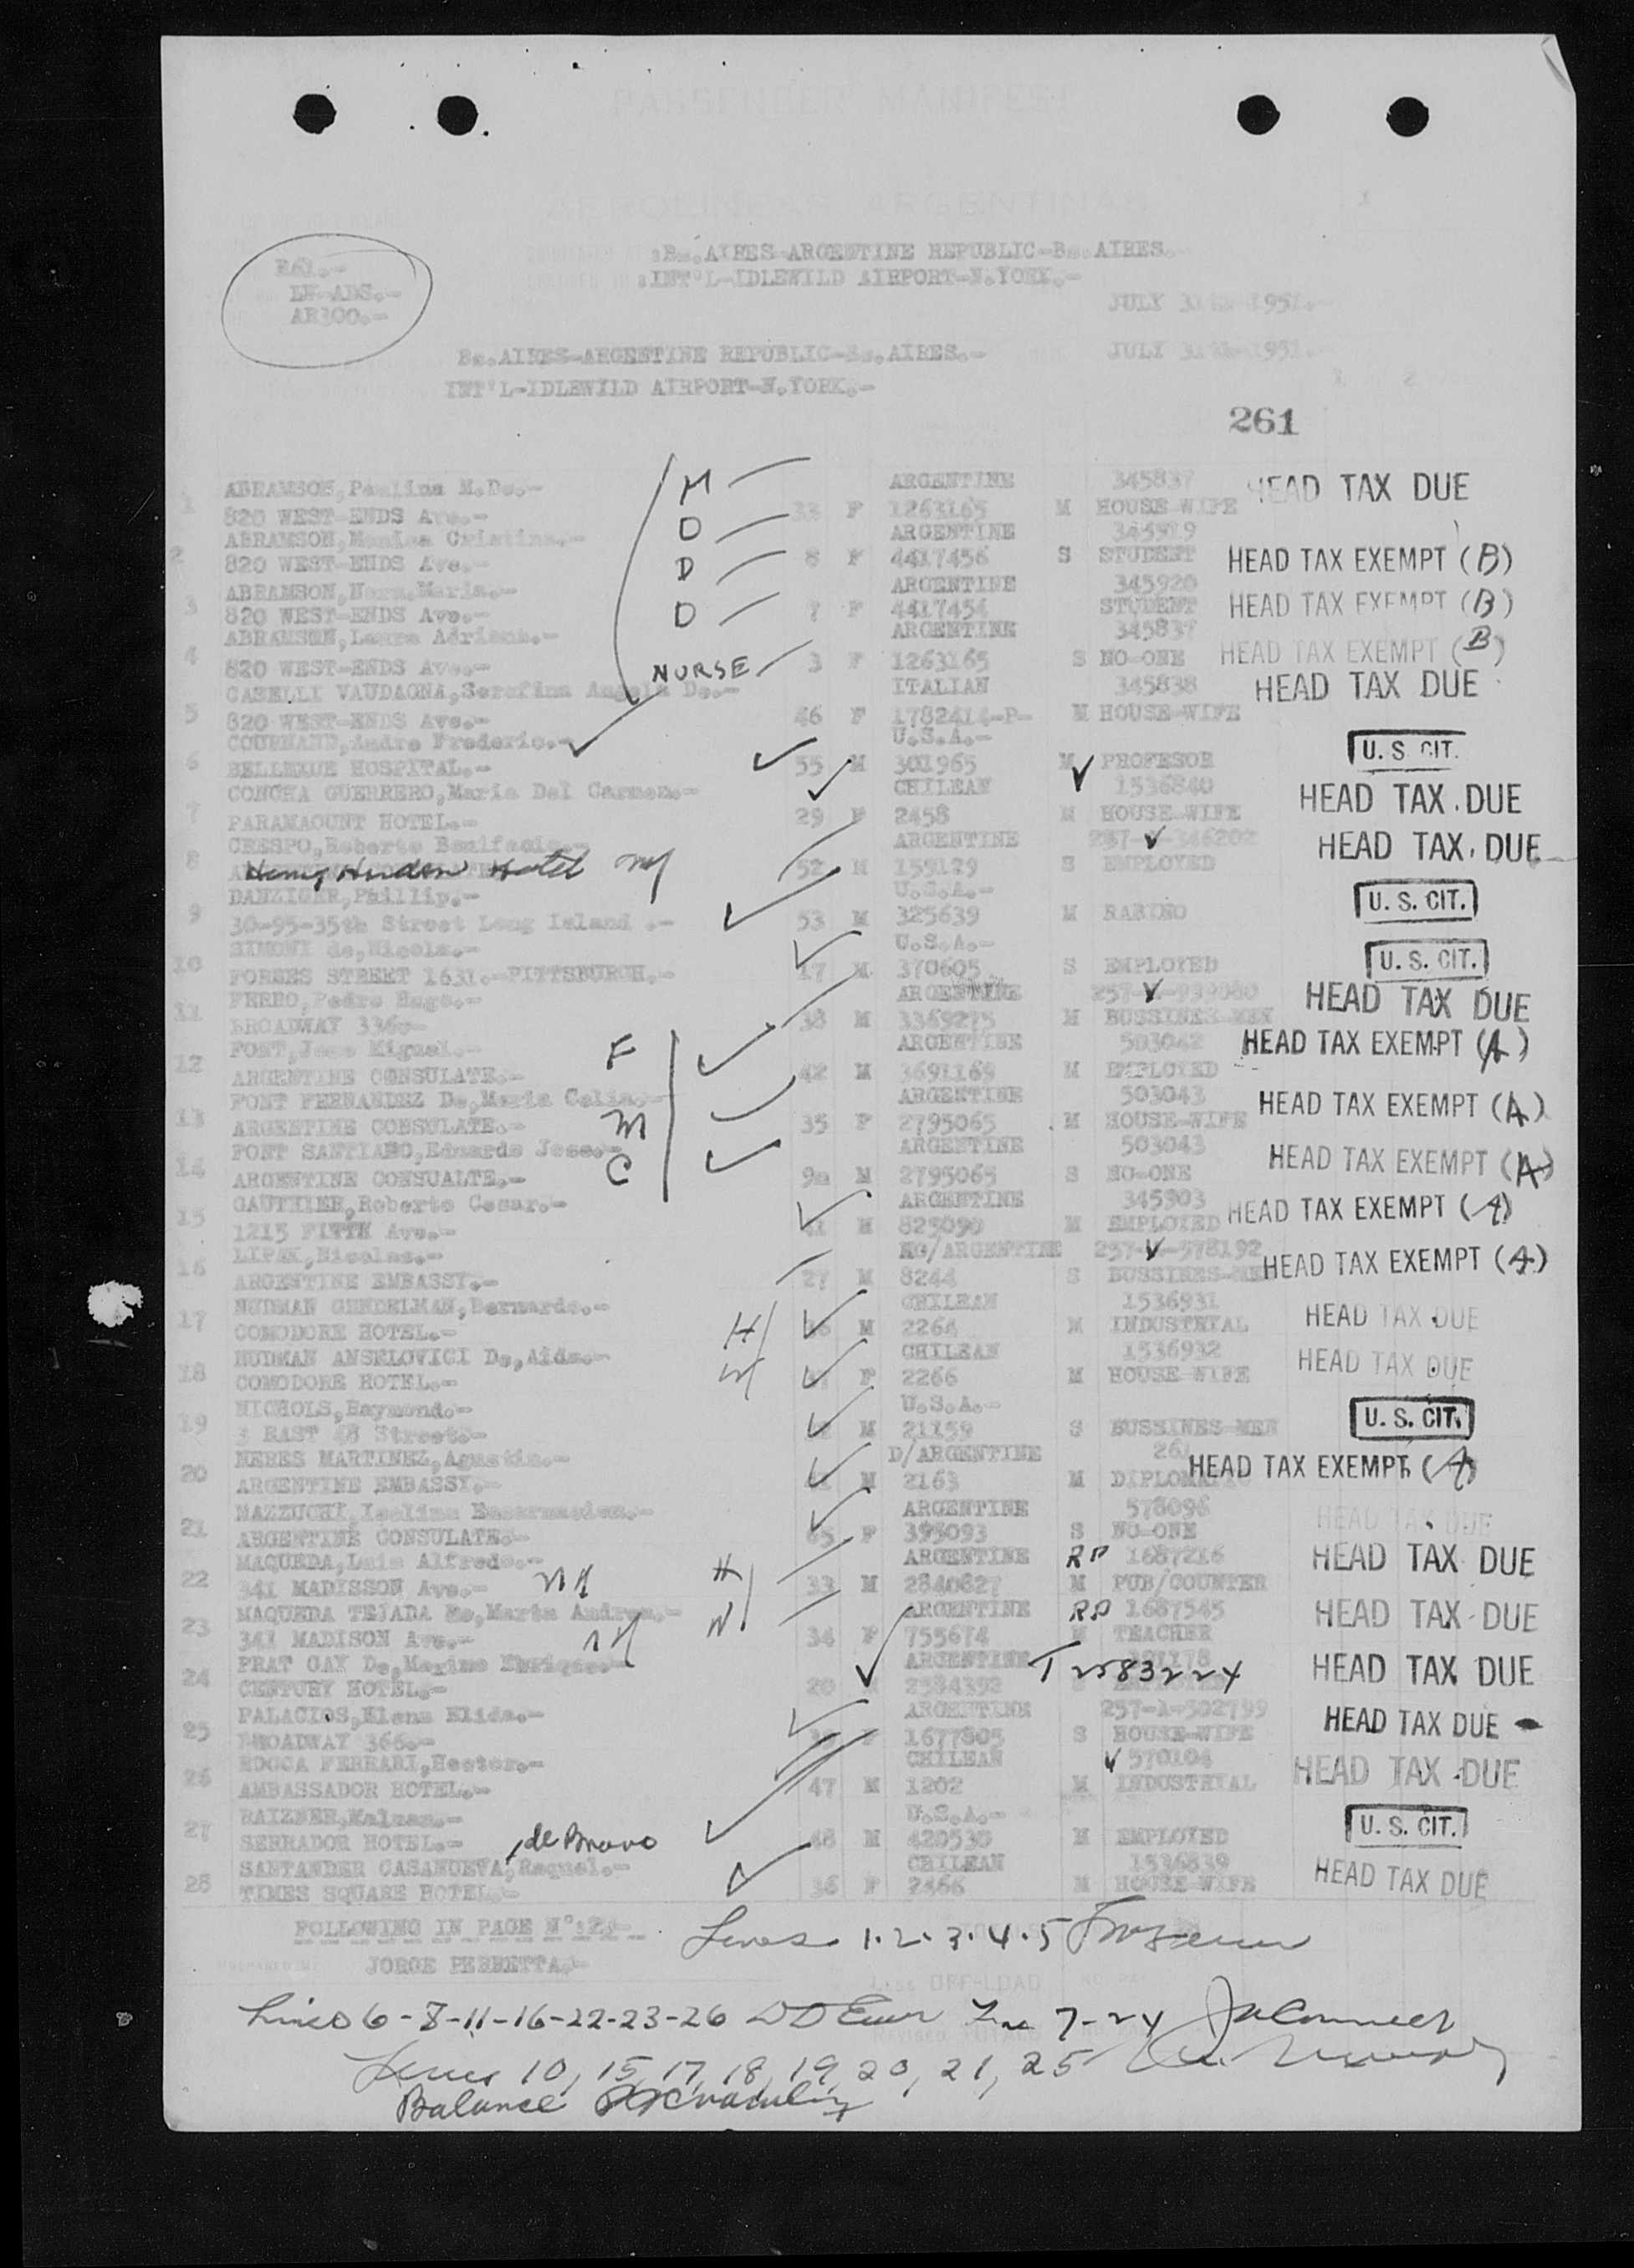 PASSENGER MANIFEST
AEROLINEAS ARGENTINAS
:Bs.AIRES-ARGENTINE REPUBLIC-Bs.AIRES.
:INT'L-IDLEWILD AIRPORT-N.YORK.-
261.-
LV-ADS.-
AR300.-
JULY 31 1951.-
Bs.AIRES-ARGENTINE REPUBLIC-Bs.AIRES.- JULY 31 1951.-
INT'L-IDLEWILD AIRPORT-N.YORK.-
1 2
261
ABRAMSON,Paulina M.De.- M ARGENTINE 345837 HEAD TAX DUE
1 820 WEST-ENDS Ave.- 33 F 1263165 M HOUSE-WIFE
ABRAMSON, Cristina.- D ARGENTINE 345919
2 820 WEST-ENDS Ave.- 8 F 4417456 S STUDENT HEAD TAX EXEMPT (B)
ABRAMSON,Nora Maria.- D ARGENTINE 345920
3 820 WEST-ENDS Ave.- 7 F 4417454 STUDENT HEAD TAX EXEMPT (B)
ABRAMSON,Laura Adriana.- D ARGENTINE 345837
4 820 WEST-ENDS Ave.- 3 F 1263165 S NO-ONE HEAD TAX EXEMPT (B)
CASELLI VAUDAGNA,Serafina Angela De.- NURSE ITALIAN 345838 HEAD TAX DUE
5 820 WEST-ENDS Ave.- 46 F 1782414-P- M HOUSE-WIFE
COURNAND,Andre Frederic.- U.S.A.-
6 BELLEXUE HOSPITAL.- 55 M 301965 M PROFESOR U. S. CIT.
CONCHA GUERRERO,Maria Del Carmen.- CHILEAN 1536840 HEAD TAX DUE
7 PARAMAOUNT HOTEL.- 29 F 2458 M HOUSE-WIFE
CRESPO,Roberto Bonifacio.- ARGENTINE 257- -346202 HEAD TAX DUE
8 Henry Hudson Hotel NY 52 M 159129 S EMPLOYED
DANZIGER,Phillip.- U.S.A.-
9 30-95-35th Street Long Island .- 53 M 325639 M RABINO U. S. CIT.
SIMONI de,Nicola.- U.S.A.-
10 FORBES STREET 1631.-PITTSBURGH.- 17 M 370605 S EMPLOYED U. S. CIT.
FERRO,Pedro Hugo.- ARGENTINE 257- -939080 HEAD TAX DUE
11 BROADWAY 336.- 38 M 3369275 M BUSSINES-MEN
FONT,Jose Miguel.- F ARGENTINE 503042 HEAD TAX EXEMPT (A)
12 ARGENTINE CONSULATE.- 42 M 3691169 M EMPLOYED
FONT FERNANDEZ De,Maria Celia.- ARGENTINE 503043
13 ARGENTINE CONSULATE.- M 35 F 2795065 M HOUSE-WIFE HEAD TAX EXEMPT (A)
FONT SANTIAGO,Eduardo Jose.- ARGENTINE 503043
14 ARGENTINE CONSUALTE.- C 9m M 2795065 S NO-ONE HEAD TAX EXEMPT (A)
GAUTHIER,Roberto Cesar.- ARGENTINE 345903
15 1215 FIFTH Ave.- 41 M 825090 M EMPLOYED HEAD TAX EXEMPT (A)
LIPAK,Nicolas.- NG/ARGENTINE 257- -578192
16 ARGENTINE EMBASSY.- 27 M 8244 S BUSSINES-MEN HEAD TAX EXEMPT (A)
NUDMAN GENDELMAN,Bernardo.- CHILEAN 1536931
17 COMODORE HOTEL.- H M 2264 M INDUSTRIAL HEAD TAX DUE
NUDMAN ANSELOVICI De,Aida.- CHILEAN 1536932
18 COMODORE HOTEL.- W F 2266 M HOUSE-WIFE HEAD TAX DUE
NICHOLS,Raymond.- U.S.A.-
19 3 EAST 48 Street.- M 21159 S BUSSINES-MEN U. S. CIT.
NERES MARTINEZ,Agustin.- D/ARGENTINE
20 ARGENTINE EMBASSY.- M 2163 M DIPLOMATIC HEAD TAX EXEMPT (A)
MAZZUCHI,Isolina Encarnacion.- ARGENTINE 578096 HEAD TAX DUE
21 ARGENTINE CONSULATE.- 65 F 395093 S NO-ONE
MAQUEDA,Luis Alfredo.- H ARGENTINE RP 1687216 HEAD TAX DUE
22 341 MADISSON Ave.- NY 33 M 2840627 M PUB/COUNTER
MAQUEDA TEJADA De,Marta Andrea.- W ARGENTINE RP 1687545 HEAD TAX DUE
23 341 MADISON Ave.- NY 34 F 755674 M TEACHER
PRAT GAY De,Maximo Enrique.- ARGENTINE T2583224 HEAD TAX DUE
24 CENTURY HOTEL.- 20 2384392
PALACIOS,Elena Elida.- ARGENTINE 257-A-502799 HEAD TAX DUE
25 BROADWAY 366.- F 1677805 S HOUSE-WIFE
ROCCA FERRARI,Hector.- CHILEAN 570104
26 AMBASSADOR HOTEL.- 47 M 1202 M INDUSTRIAL HEAD TAX DUE
RAIZNER,Kalman.- U.S.A.-
27 SERRADOR HOTEL.- 48 M 420530 M EMPLOYED U. S. CIT.
SANTANDER CASANUEVA,de Bravo Raquel.- CHILEAN 1536839 HEAD TAX DUE
28 TIMES SQUARE HOTEL.- 36 F 2466 M HOUSE-WIFE
FOLLOWING IN PAGE N°:2.-
Lines 1.2.3.4.5
JORGE PERRETTA.-
OFF-LOAD
Lines 6-8-11-16-22-23-26 Line 7-24
Lines 10, 15, 17, 18, 19, 20, 21, 25
Balance